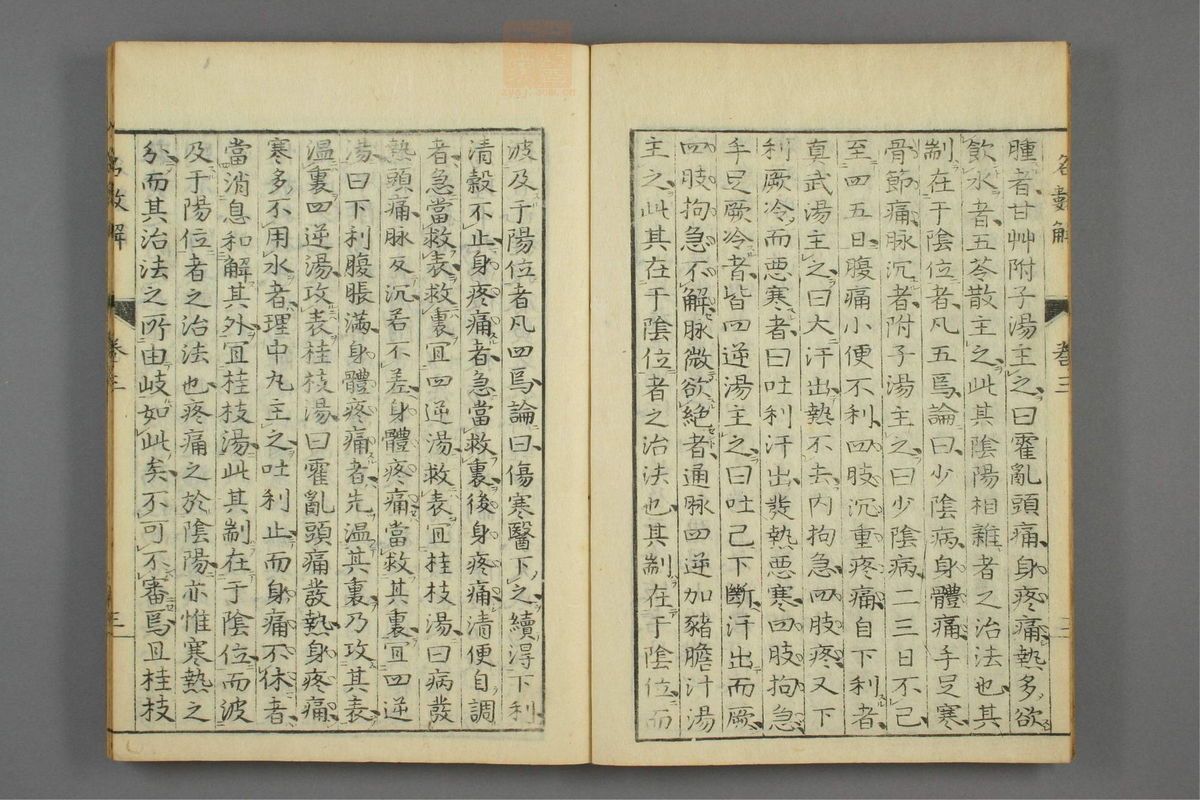 腫者甘艸附子湯主之曰霍亂頭痛身疼痛熱多欲
飮水者五苓散主之此其陰陽相雜者之治法也其
制在于陰位者凡五焉論曰少陰病身體痛手足寒
骨節痛脉沉者附子湯主之曰少陰病二三日不已
至四五日腹痛小便不利四肢沉重疼痛自下利者
真武湯主之曰大汗出熱不去内拘急四肢疼又下
利厥冷而悪寒者曰吐利汗出發熱悪寒四肢拘急
手足厥冷者皆四逆湯主之曰吐已下斷汗出而厥
四肢拘急不解脉微欲絶者通脉四逆加豬膽汁湯
主之此其在于陰位者之治法也其制在于陰位而
波及于陽位者凡四焉論曰傷寒醫下之續得下利
清穀不止身疼痛者急當救裏後身疼痛清便自調
者急當救表救裏宜四逆湯救表宜桂枝湯曰病發
熱頭痛脉反沉若不差身體疼痛當救其裏宜四逆
湯曰下利腹脹満身體疼痛者先温其裏乃攻其表
温裏四逆湯攻表桂枝湯曰霍亂頭痛發熱身疼痛
寒多不用水者理中丸主之吐利止而身痛不休者
當消息和解其外宜桂枝湯此其制在于陰位而波
及于陽位者之治法也疼痛之於陰陽亦惟寒熱之
分而其治法之所由岐如此矣不可不審焉且桂枝
名數解
卷三